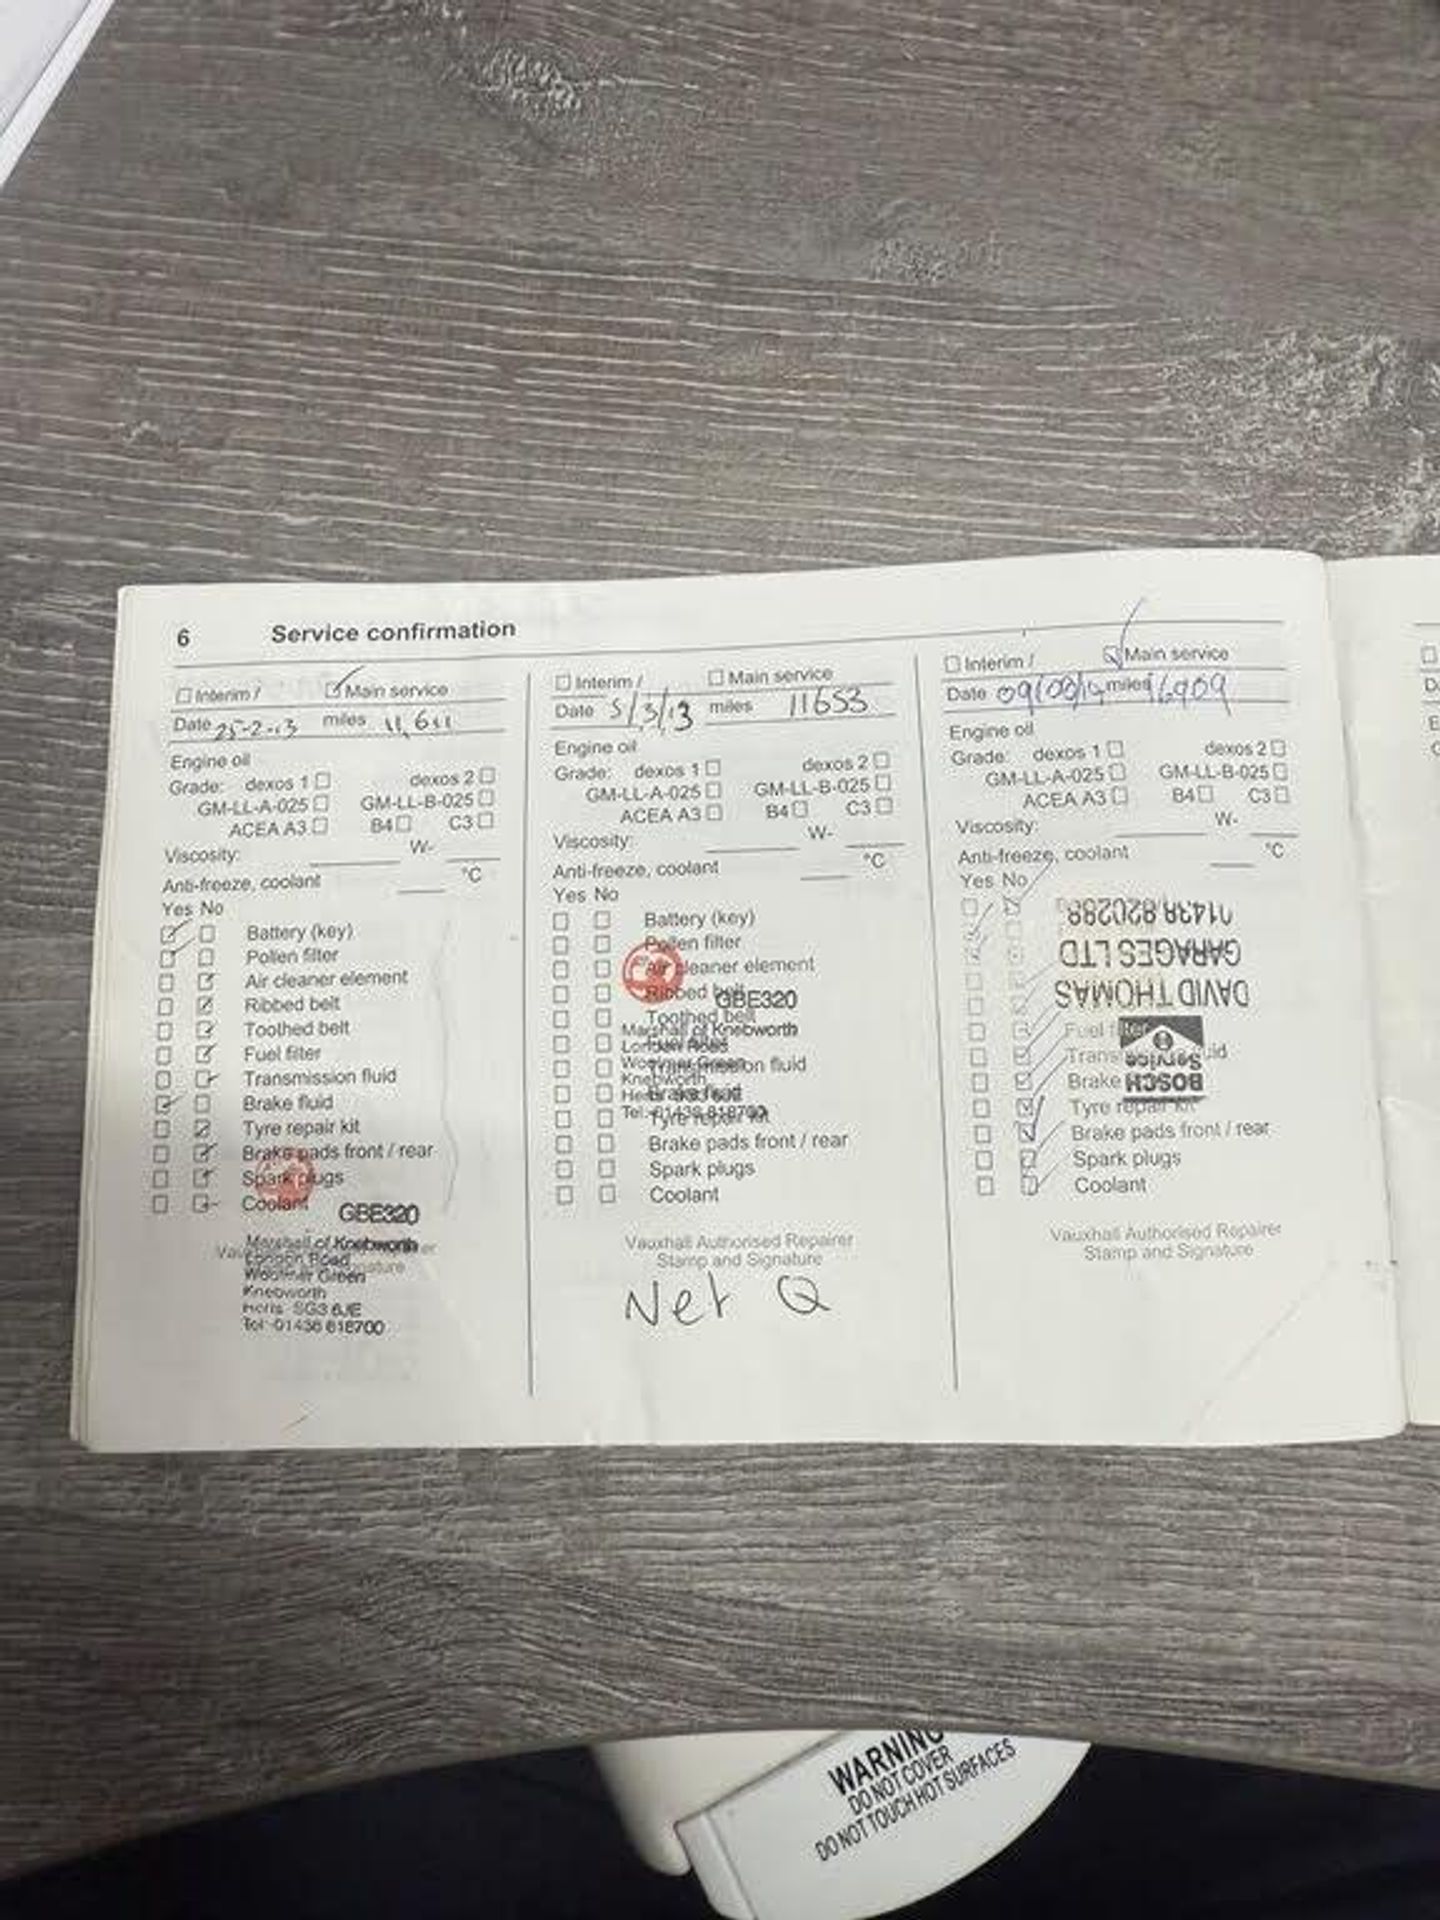 6 Service confirmation
Interim / Main service
Date 25-2-13 miles 11,611
Engine oil
Grade: dexos 1 dexos 2
GM-LL-A-025 GM-LL-B-025
ACEA A3 B4 C3
Viscosity: W-
Anti-freeze, coolant °C
Yes No
Battery (key)
Pollen filter
Air cleaner element
Ribbed belt
Toothed belt
Fuel filter
Transmission fluid
Brake fluid
Tyre repair kit
Brake pads front / rear
Spark plugs
Coolant
GBE320
Marshall of Knebworth
London Road
Woolmer Green
Knebworth
Herts SG3 6JE
Tel: 01438 818700
Interim / Main service
Date 5/3/13 miles 11653
Engine oil
Grade: dexos 1 dexos 2
GM-LL-A-025 GM-LL-B-025
ACEA A3 B4 C3
Viscosity: W-
Anti-freeze, coolant °C
Yes No
Battery (key)
Pollen filter
Air cleaner element
Ribbed belt
GBE320
Toothed belt
Marshall of Knebworth
Fuel filter
London Road
Woolmer Green
Transmission fluid
Knebworth
Brake fluid
Herts SG3 6JE
Tel: 01438 818700
Tyre repair kit
Brake pads front / rear
Spark plugs
Coolant
Vauxhall Authorised Repairer
Stamp and Signature
Net Q
Interim / Main service
Date miles 16909
Engine oil
Grade: dexos 1 dexos 2
GM-LL-A-025 GM-LL-B-025
ACEA A3 B4 C3
Viscosity: W-
Anti-freeze, coolant °C
Yes No
BOSCH
Service
DAVID THOMAS
GARAGES LTD
01438 820288
Fuel filter
Transmission fluid
Brake
Tyre repair kit
Brake pads front / rear
Spark plugs
Coolant
Vauxhall Authorised Repairer
Stamp and Signature
WARNING
DO NOT COVER
DO NOT TOUCH HOT SURFACES